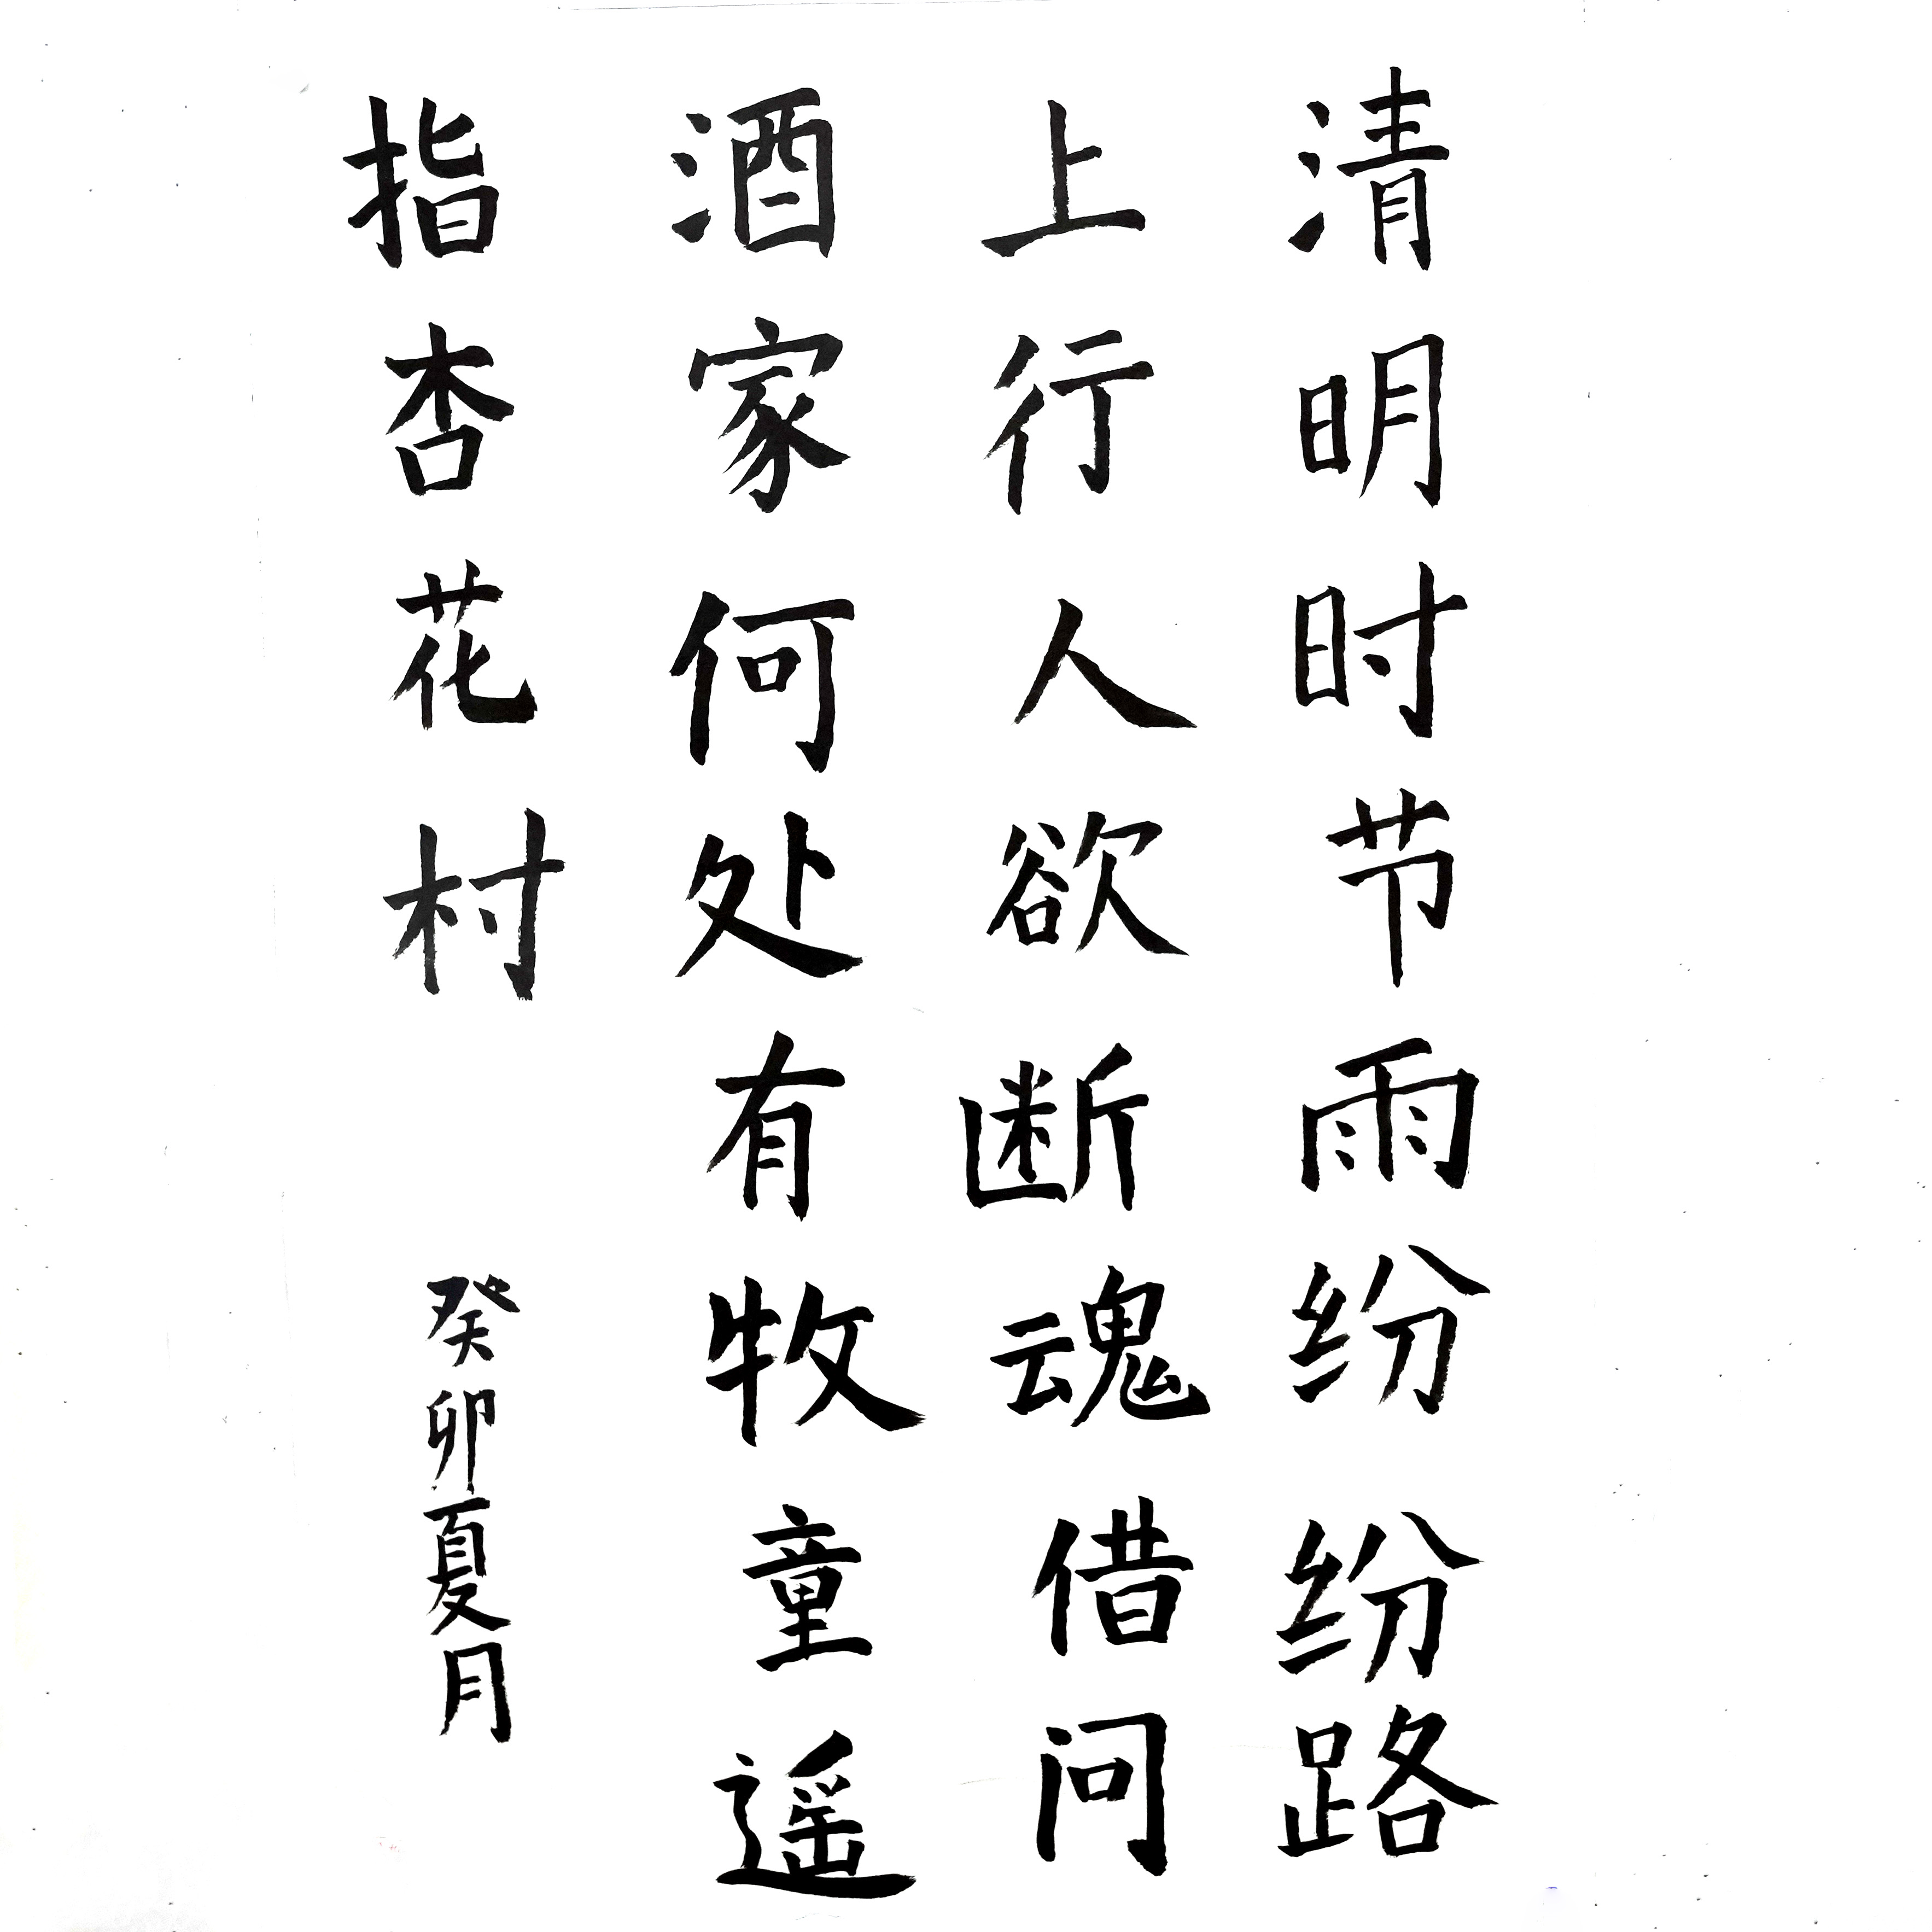 清明时节雨纷纷路
上行人欲断魂借问
酒家何处有牧童遥
指杏花村
癸卯夏月